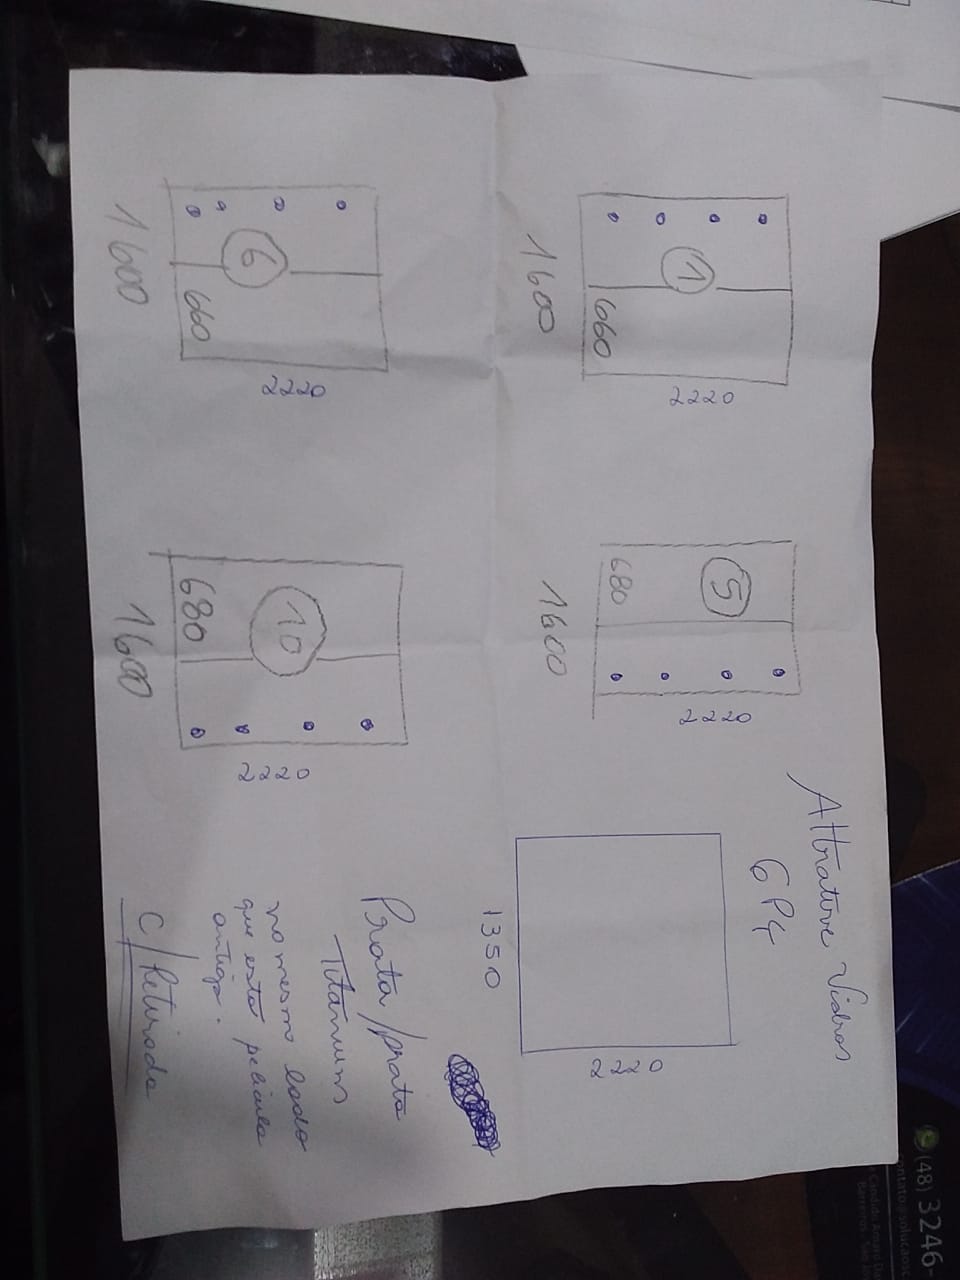 1
660
1600
2220
5
680
1600
2220
6
660
1600
2220
10
680
1600
2220
Vidros
6P4
1350
2220
Prata/prata
Titanium
no mesmo lado
que está pelicula
antiga.
C/Retirada
(48) 3246-